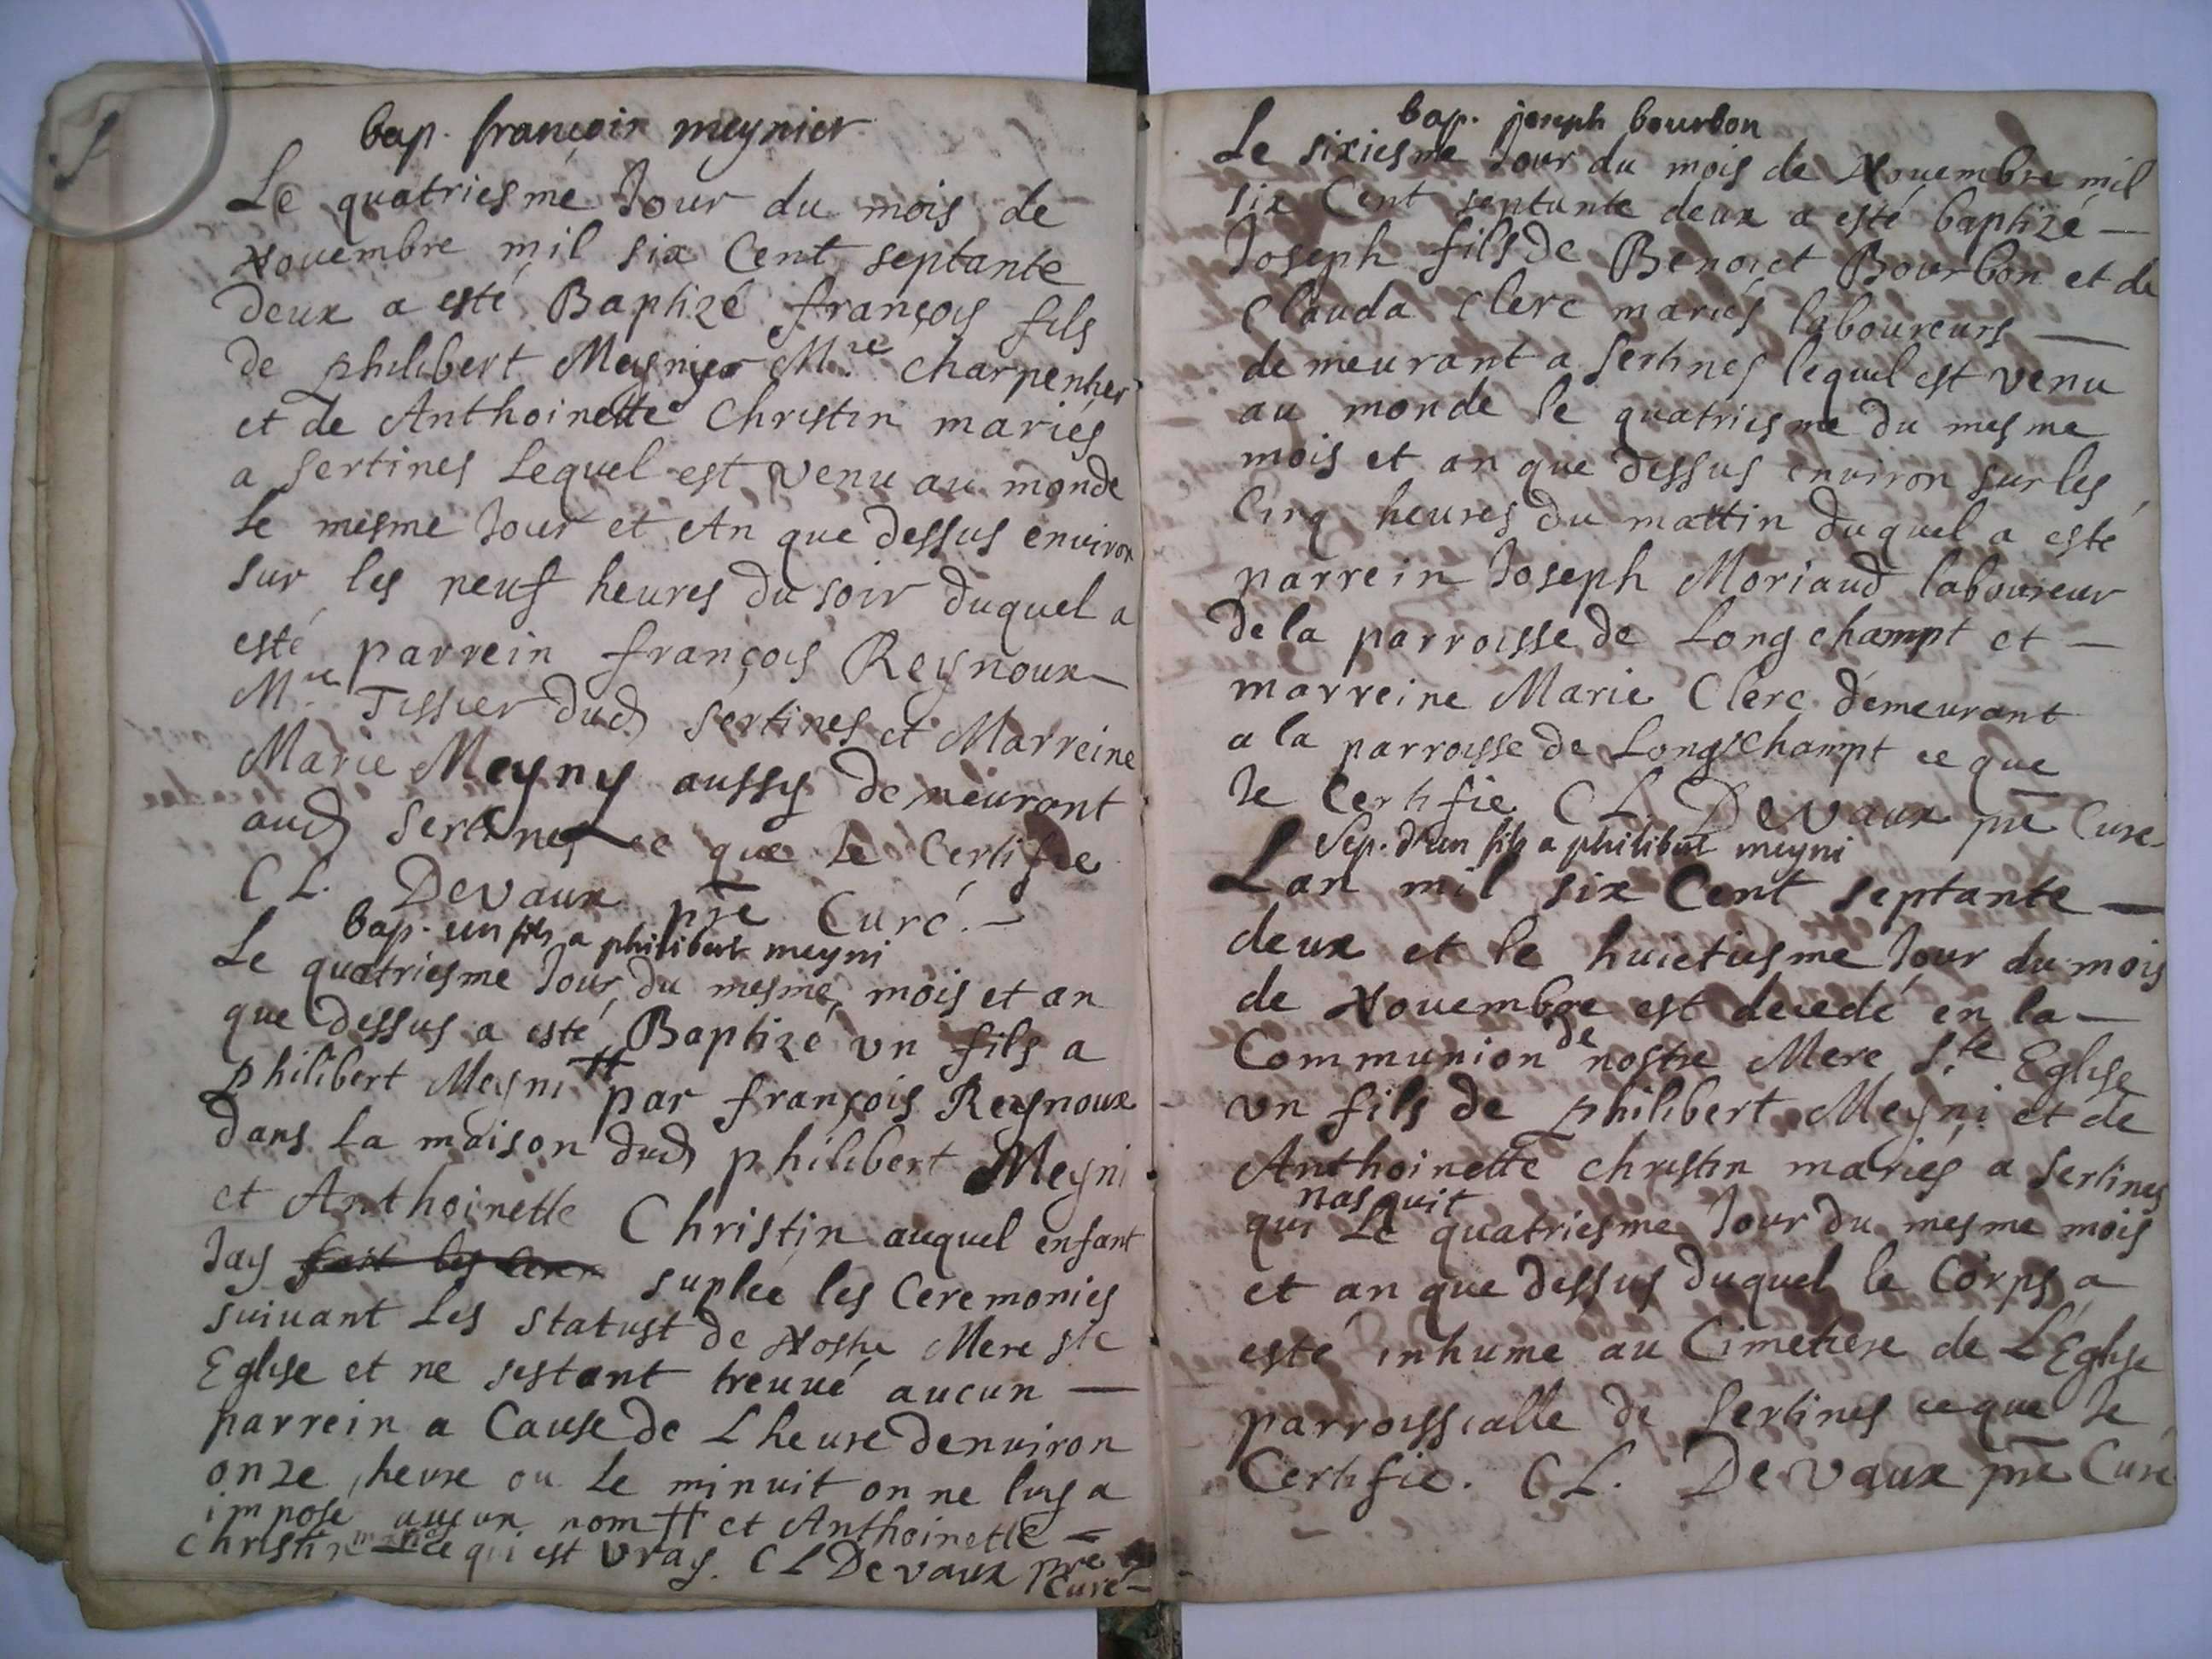 bap. françoir meynier
Le quatriesme Jour du mois de
Nouembre mil six Cent septante
deux a esté Baptizé françois fils
de philibert Meynier M.re charpentier
et de Anthoinette Christin mariés
a Sertines Lequel est venu au monde
Le mesme Jour et An que dessus environ
sur les neuf heures du soir duquel a
esté parrein françois Reynoux
M.re Tissier dud Sertines et Marreine
Marie Meyny aussy demeurant
aud Sertines ce que Je Certifie
C L. Devaux pre Curé.
bap. un fils a philibert meyni
Le quatriesme Jour du mesme mois et an
que dessus a esté Baptizé vn fils a
philibert Meyni # par françois Reynoux
dans La maison dud philibert Meyni
et Anthoinette Christin auquel enfant
Jay fait les cerem suplée les Ceremonies
suivant Les statust de Nostre Mere ste
Eglise et ne sestant treuué aucun —
parrein a Cause de L heure denuiron
onze heure ou Le minuit on ne luy a
imposé aucun nom # et Anthoinette =
christin mariés ce qui est vray. C L Devaux pre
Curé -
bap. joseph bourbon
Le sixiesme Jour du mois de Nouembre mil
six Cent septante deux a esté baptizé —
Joseph fils de Benoict Bourbon et de
Clauda Clerc mariés laboureurs —
demeurant a Sertines lequel est venu
au monde le quatriesme du mesme
mois et an que dessus environ sur les
Cinq heures du mattin duquel a esté
parrein Joseph Moriaud laboureur
de la parroisse de Longchampt et —
marreine Marie Clerc demeurant
a la parroisse de Longchampt ce que
Je Certifie C L Devaux pre Curé
Sep. d'un fils a philibert meyni
Lan mil six Cent septante —
deux et le huictiesme Jour du mois
de Nouembre est decedé en la —
Communion de nostre Mere S.te Eglise
vn fils de philibert Meyni et de
Anthoinette christin mariés a Sertines
qui nasquit Le quatriesme Jour du mesme mois
et an que dessus duquel le Corps a
esté inhumé au Cimetiere de L'Eglise
parroissialle de Sertines ce que Je
Certifie. C L. Devaux pre Curé